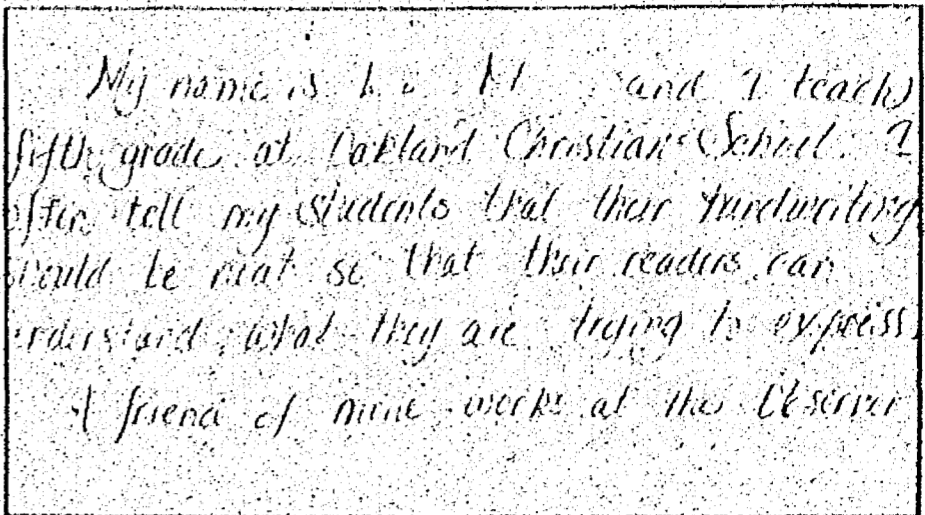 My name is and I teach
fifth grade at Oakland Christian School. I
often tell my students that their handwriting
should be neat so that their readers can
understand what they are trying to express.
A friend of mine works at the Observer